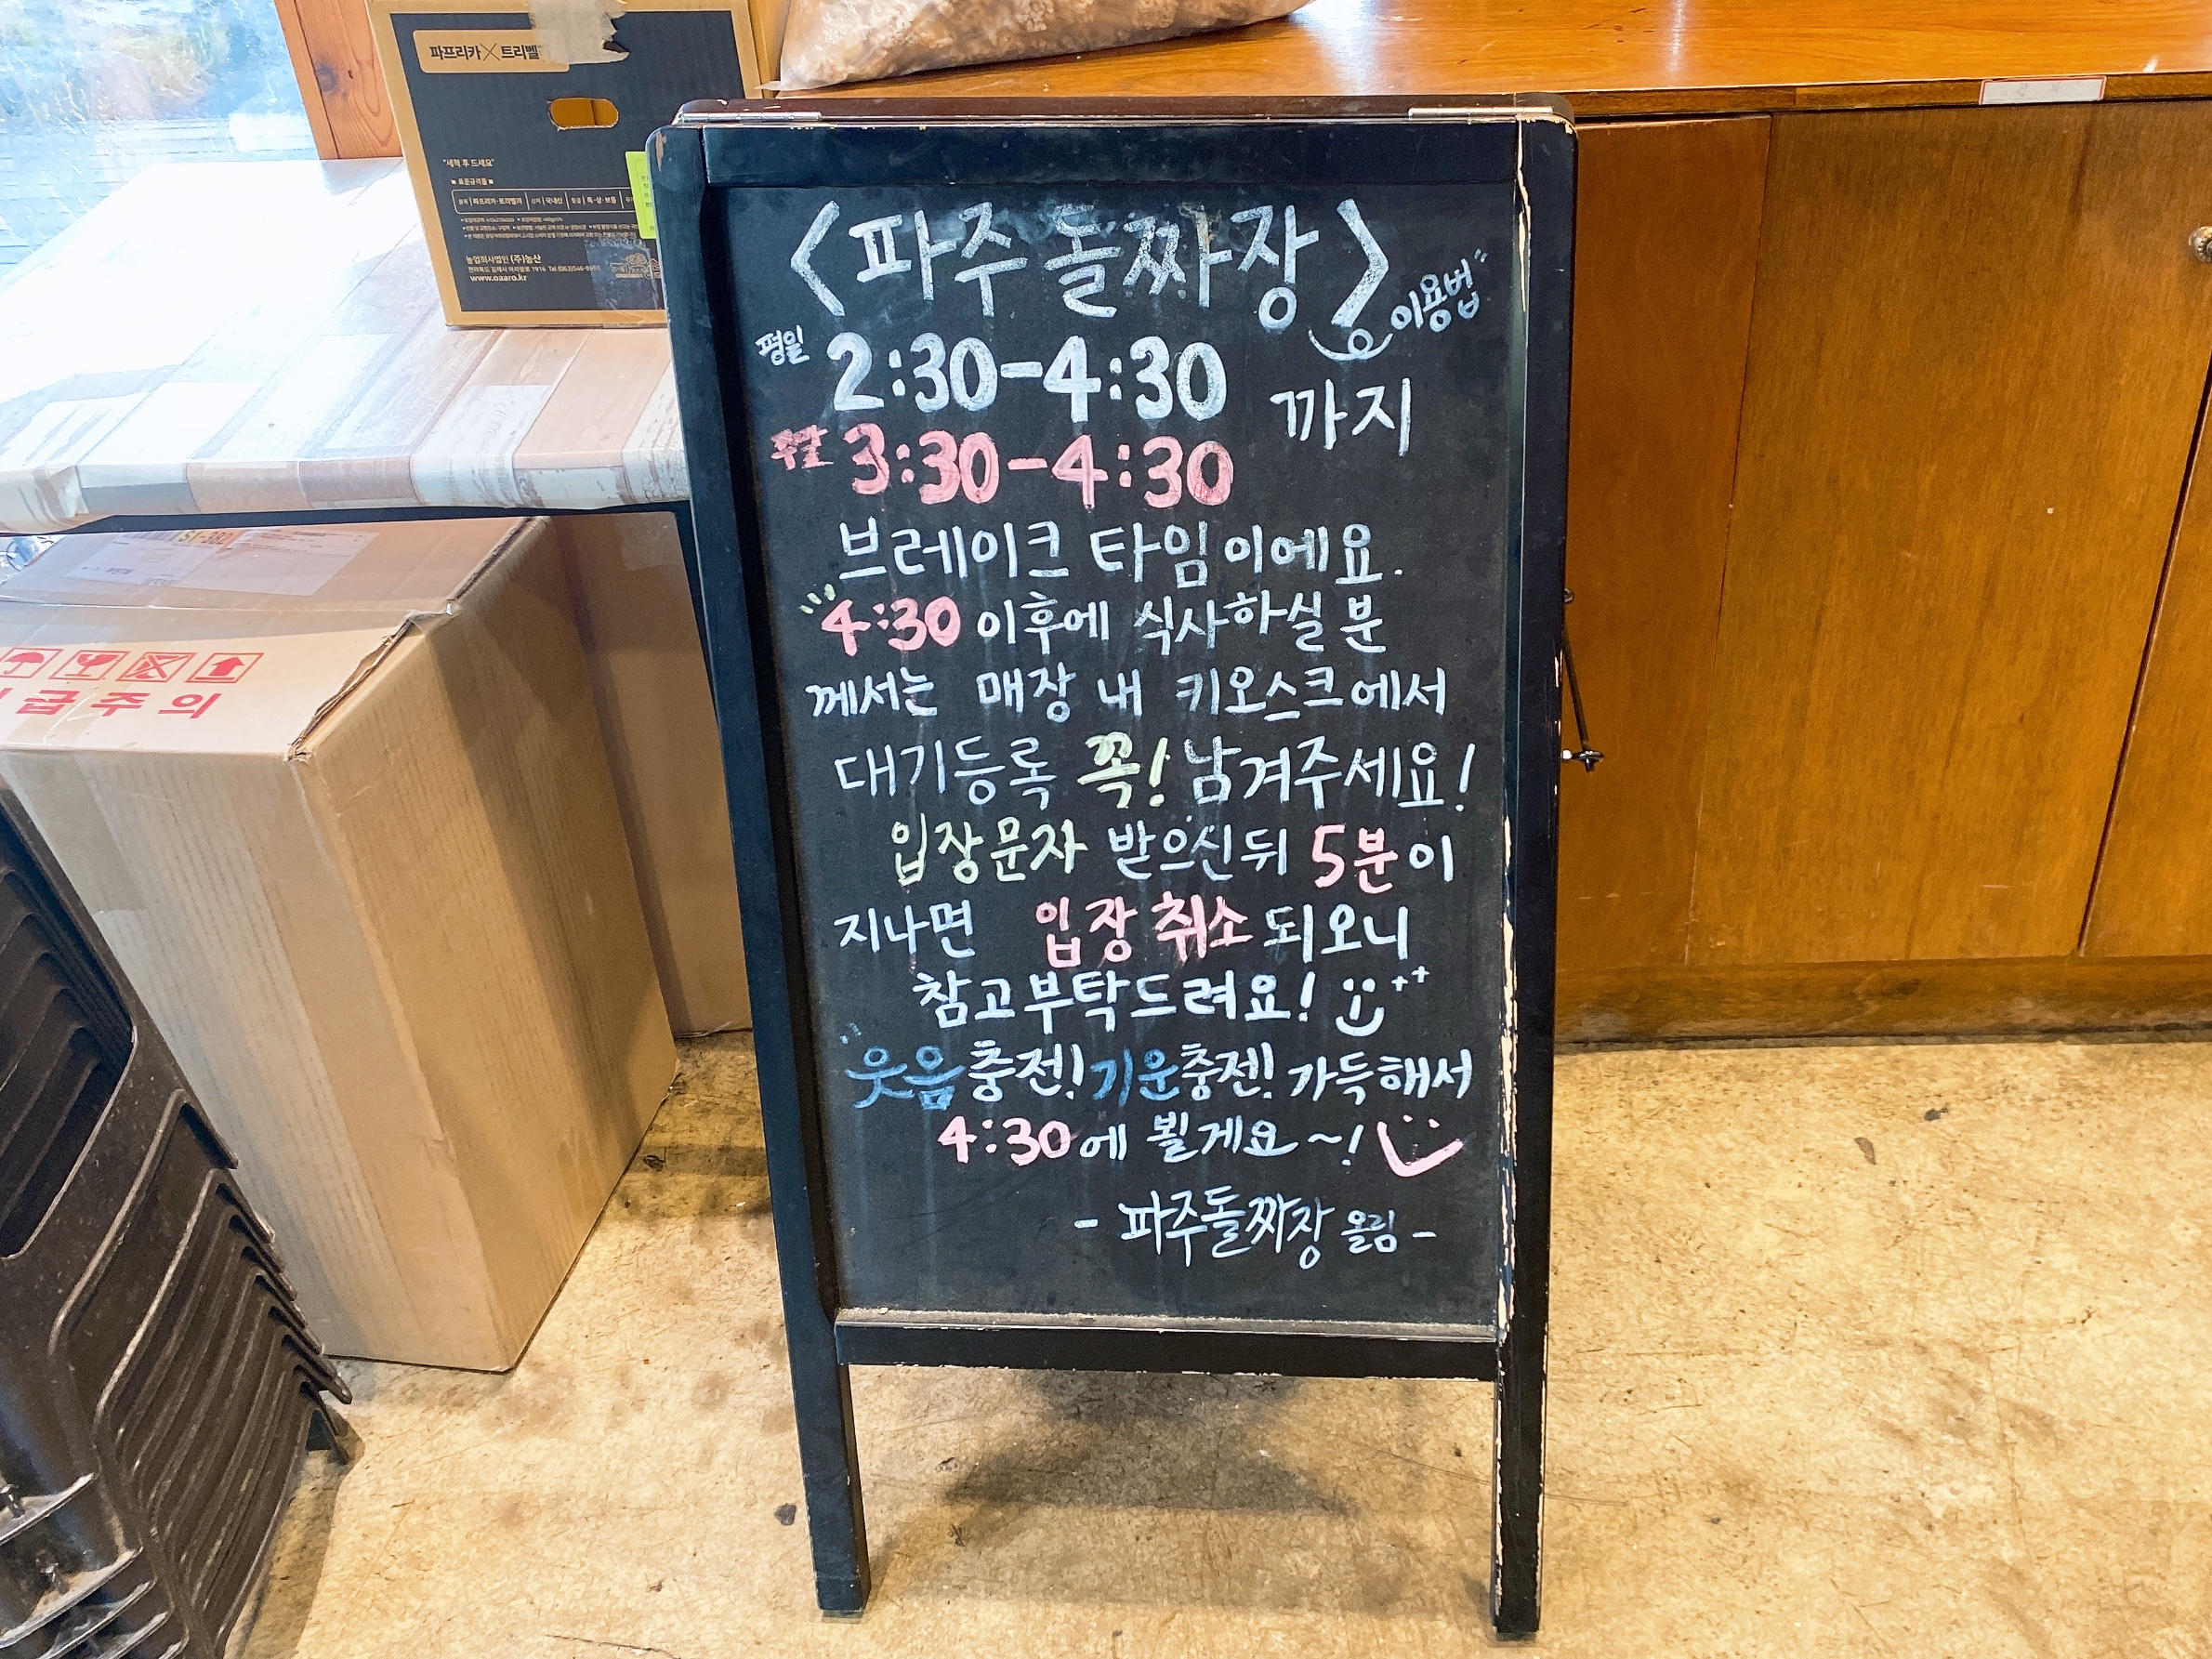 파프리카 X 트리벨
"세척 후 드세요"
표준규격품
농업회사법인 (주)농산
www.oaaro.kr
ST-382
급주의
<파주 돌짜장>
이용법
평일 2:30-4:30
까지
주말 3:30-4:30
브레이크 타임이에요.
4:30 이후에 식사하실 분
께서는 매장 내 키오스크에서
대기등록 꼭! 남겨주세요!
입장문자 받으신뒤 5분이
지나면 입장 취소 되오니
참고부탁드려요!
웃음충전! 기운충전! 가득해서
4:30에 뵐게요~!
- 파주돌짜장 올림 -